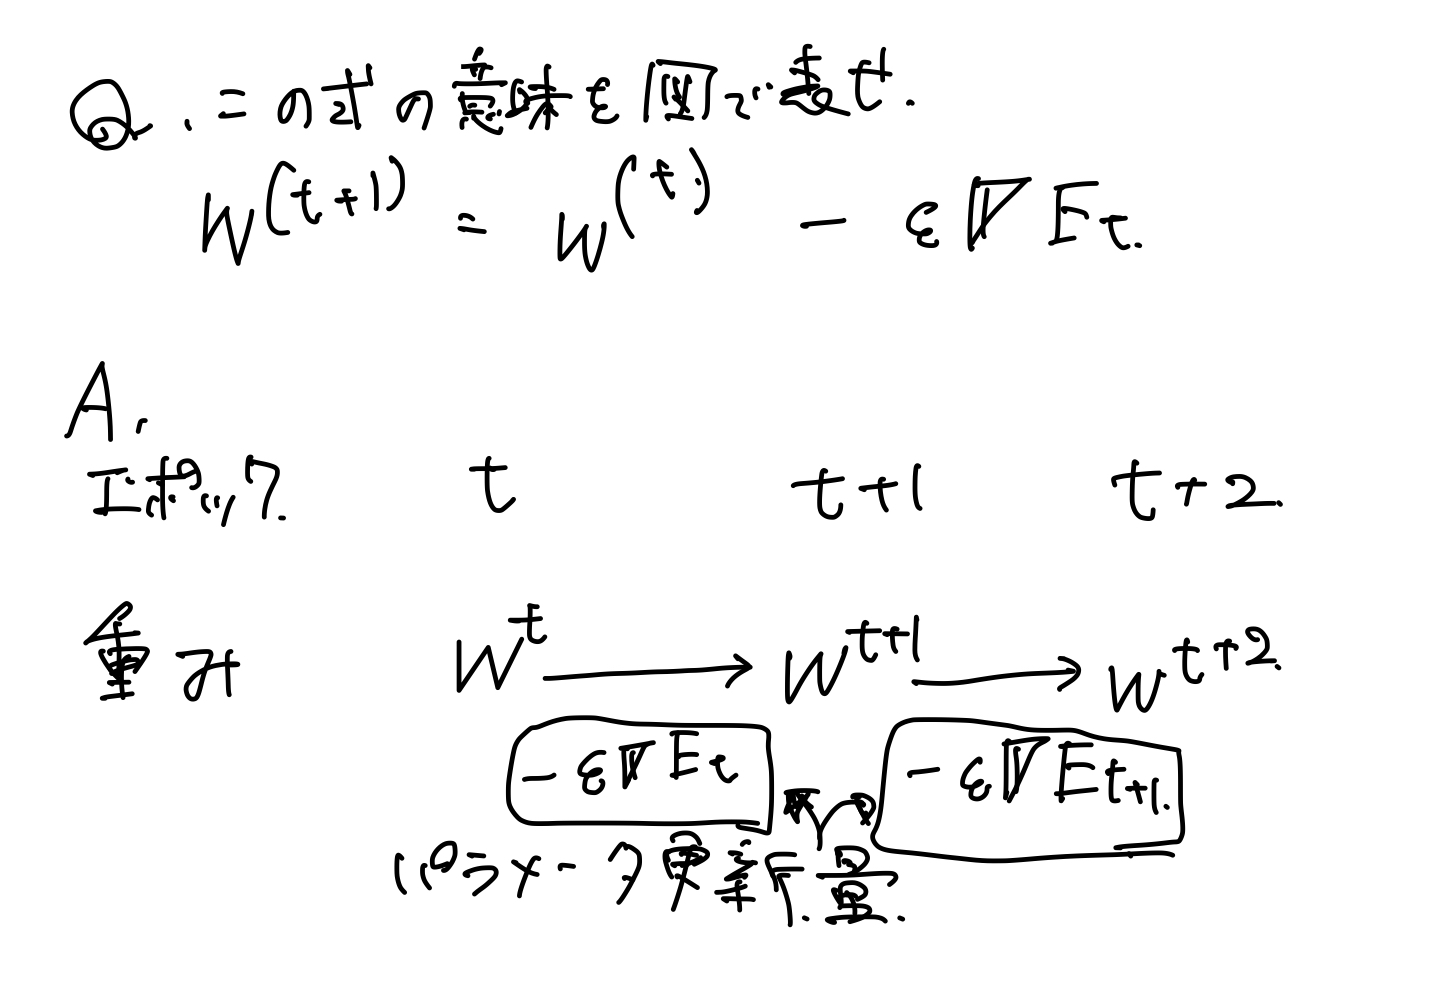 Q. この式の意味を図で表せ.
W^(t+1) = W^(t) - ε∇E_t.
A.
エポック. t t+1 t+2.
重み W^t → W^t+1 → W^t+2.
-ε∇E_t -ε∇E_t+1.
パラメータ更新量.